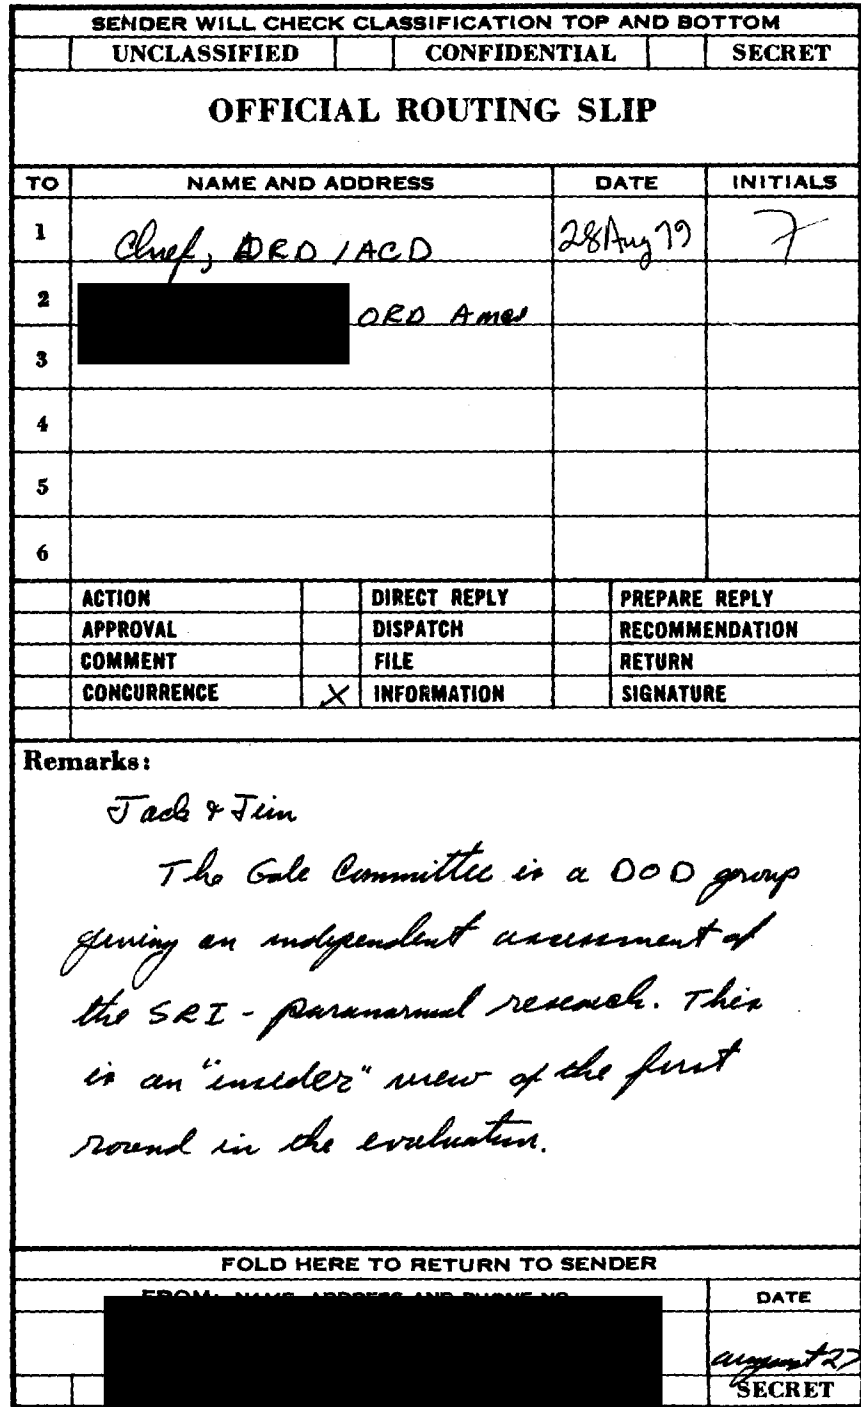 SENDER WILL CHECK CLASSIFICATION TOP AND BOTTOM
UNCLASSIFIED CONFIDENTIAL SECRET
OFFICIAL ROUTING SLIP
TO NAME AND ADDRESS DATE INITIALS
1 Chief, ORD/ACD 28 Aug 79
2 ORD Ames
3
4
5
6
ACTION DIRECT REPLY PREPARE REPLY
APPROVAL DISPATCH RECOMMENDATION
COMMENT FILE RETURN
CONCURRENCE X INFORMATION SIGNATURE
Remarks:
Jack & Jim
The Gale Committee is a DOD group
giving an independent assessment of
the SRI - paranormal research. This
is an "insider" view of the first
round in the evaluation.
FOLD HERE TO RETURN TO SENDER
DATE
august 27
SECRET